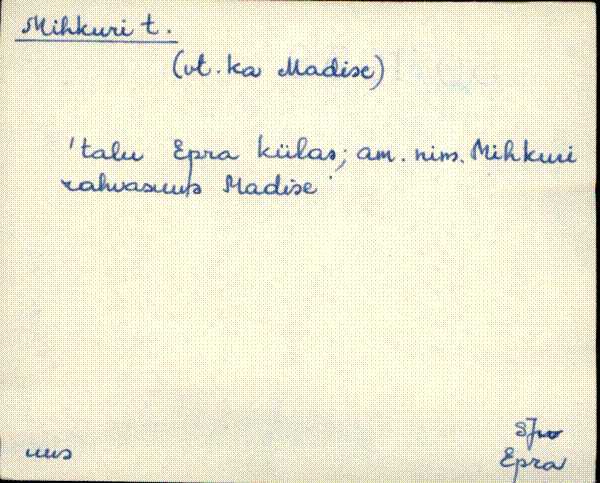 Mihkuri t.
(vt. ka Madise)
'talu Epra külas; am. nim. Mihkuri
rahvasuus Madise'
SJn
uus
Epra